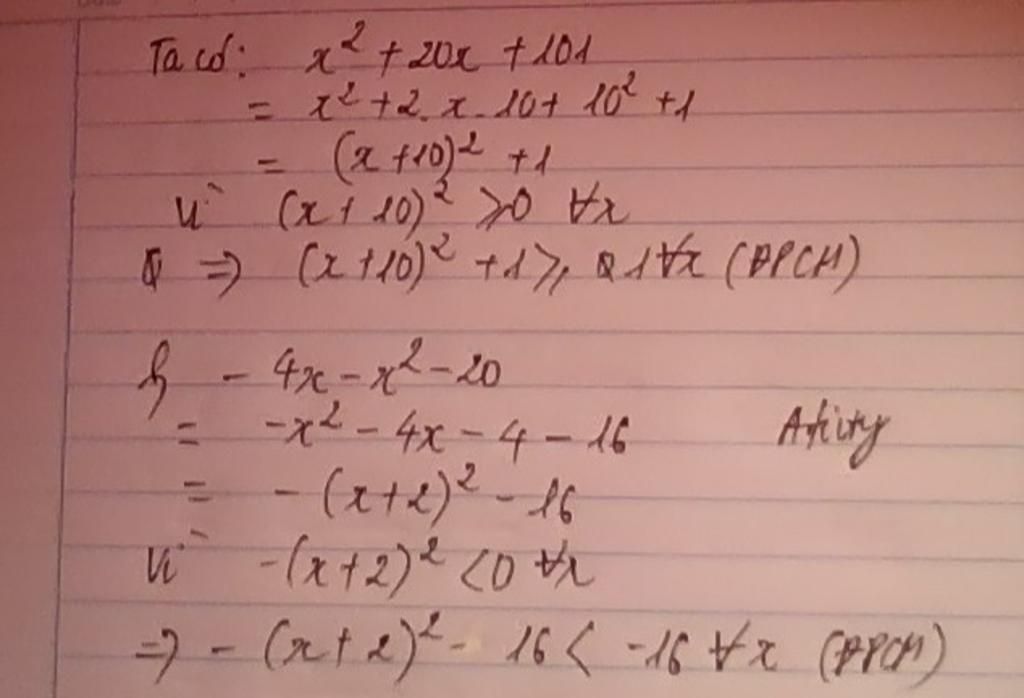 Ta có: x² + 20x + 101
= x² + 2. x. 10 + 10² + 1
= (x + 10)² + 1
Vì (x + 10)² ⩾ 0 ∀x
⇒ (x + 10)² + 1 ⩾ 1 ∀x (ĐPCM)
- 4x - x² - 20
= -x² - 4x - 4 - 16
= - (x + 2)² - 16
Vì -(x + 2)² < 0 ∀x
⇒ - (x + 2)² - 16 < -16 ∀x (ĐPCM)